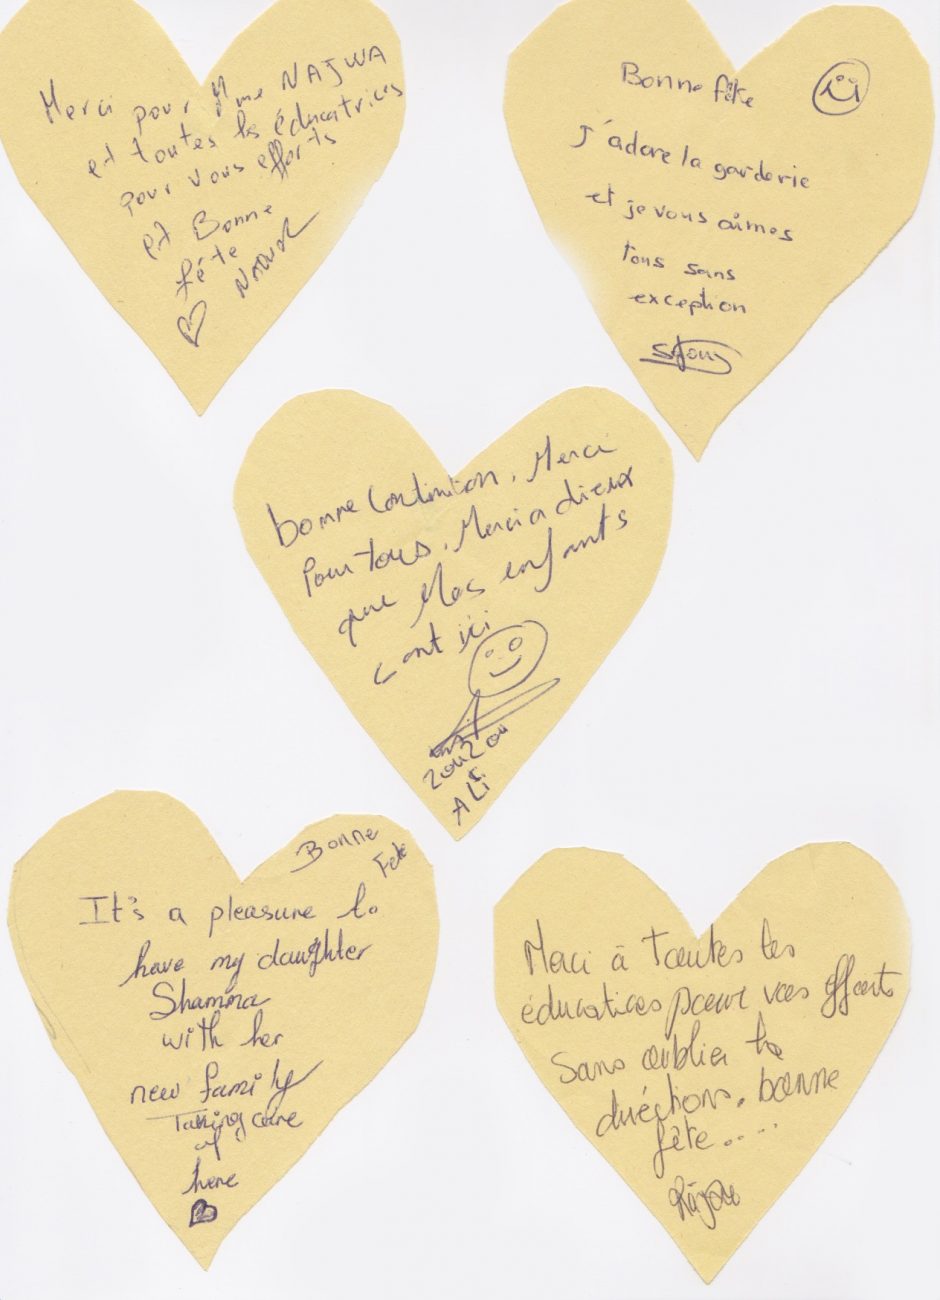 Merci pour Mme NAJWA
et toutes les éducatrices
pour vous efforts
et Bonne
fête
Bonne fête
J'adore la garderie
et je vous aimes
tous sans
exception
bonne Continution, Merci
Pour tous, Merci a dieux
que Mes enfants
sont ici
ZouZou
ALi
Bonne
Fete
It's a pleasure to
have my daughter
Shamma
with her
new family
Taking care
of
here
Merci à toutes les
éducatices pour vos efforts
Sans oublier la
diréctions, bonne
fête.....